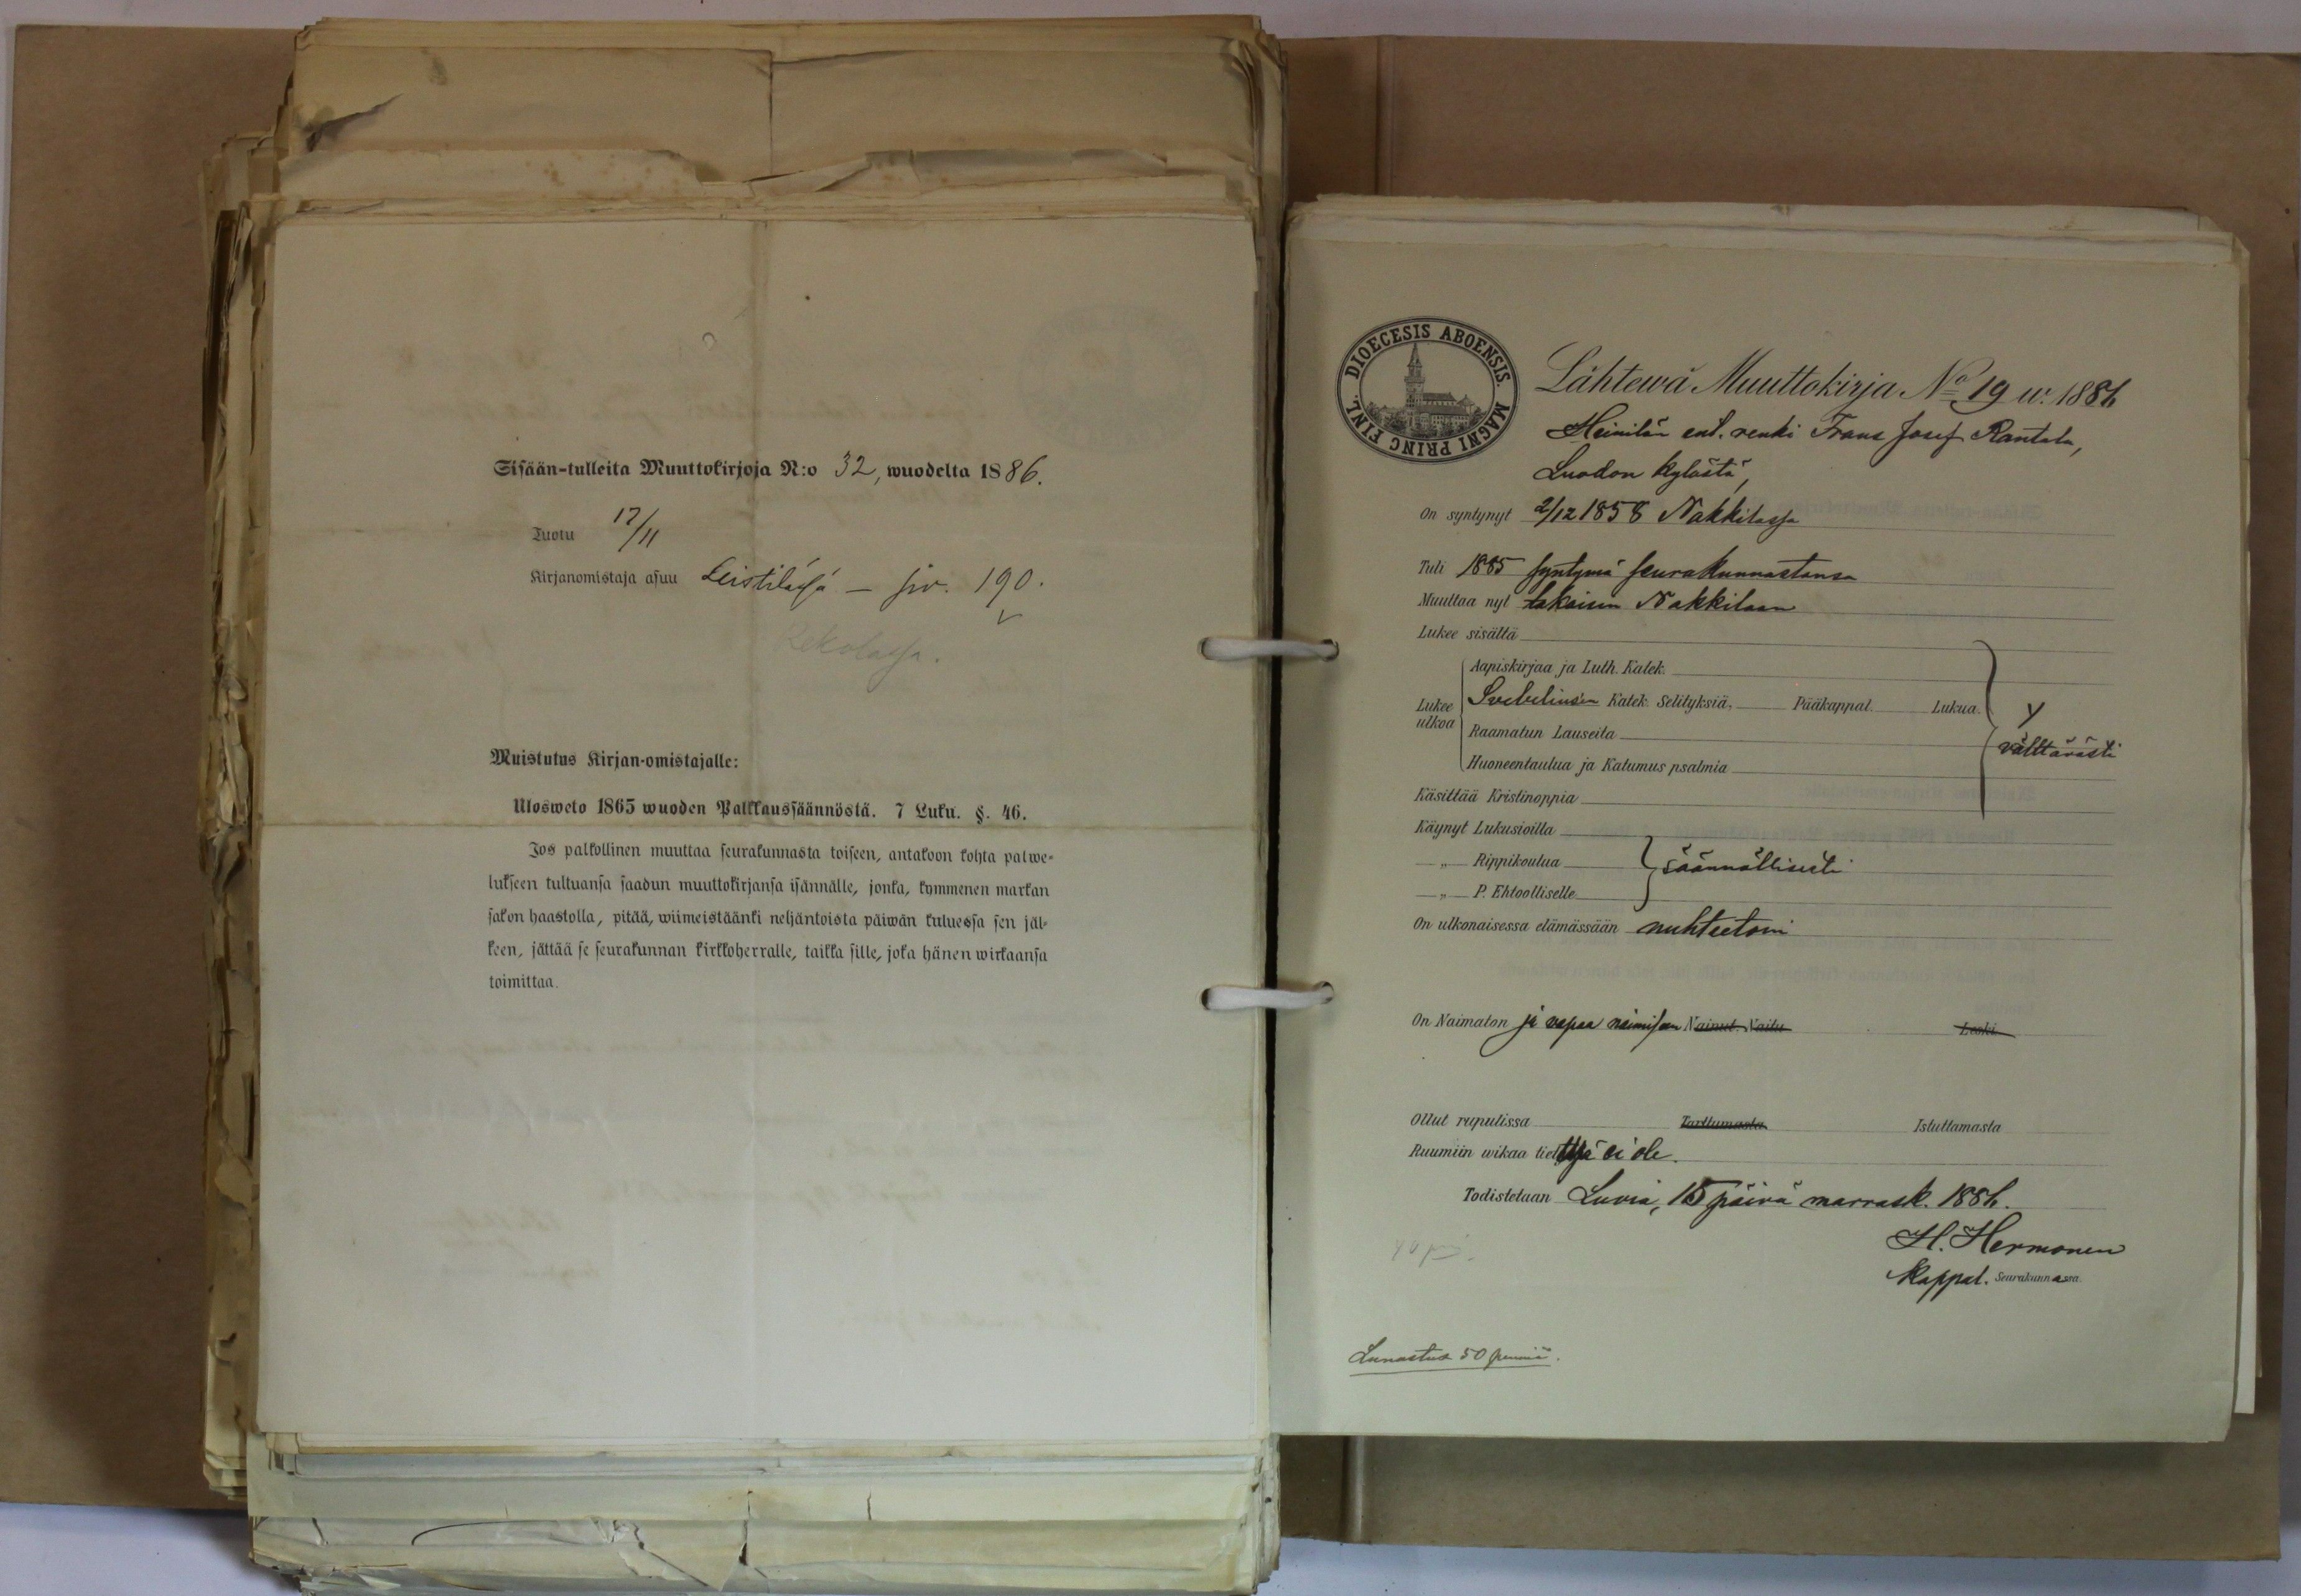 Sisään-tulleita Muuttokirjoja N:o 32, wuodelta 1886.
Tuotu 17/11
Kirjanomistaja asuu Leistilässä — siv. 190.
Rekolassa.
Muistutus Kirjan-omistajalle:
Ulosweto 1865 wuoden Palkkaussäännöstä. 7 Luku. §. 46.
Jos palkollinen muuttaa seurakunnasta toiseen, antakoon kohta palwe-
lukseen tultuansa saadun muuttokirjansa isännälle, jonka, kymmenen markan
sakon haastolla, pitää, wiimeistäänki neljäntoista päiwän kuluessa sen jäl-
keen, jättää se seurakunnan kirkkoherralle, taikka sille, joka hänen wirkaansa
toimittaa.
DIOECESIS ABOENSIS. MAGNI PRINC FINL.
Lähtewä Muuttokirja No 19 w. 1886
Heinilän ent. renki Frans Josef Rantala,
Luodon kylästä,
On syntynyt 2/12 1858 Nakkilassa
Tuli 1885 syntymä seurakunnastansa
Muuttaa nyt takaisin Nakkilaan
Lukee sisältä
Lukee ulkoa
Aapiskirjaa ja Luth. Katek.
Svebeliusen Katek. Selityksiä, Pääkappal. Lukua.
Raamatun Lauseita
välttävästi
Huoneentaulua ja Katumus psalmia
Käsittää Kristinoppia
Käynyt Lukusioilla
„ Rippikoulua säännöllisesti
„ P. Ehtoolliselle
On ulkonaisessa elämässään nuhteetoin
On Naimaton ja vapaa naimisen Nainut. Naitu Leski
Ollut rupulissa Tarttumasta Istuttamasta
Ruumiin wikaa tiettyä ei ole.
Todistetaan Luvia, 15 päivä marrask. 1886.
H. Hermonen
Kappal. Seurakunnassa.
Lunastus 50 penniä.